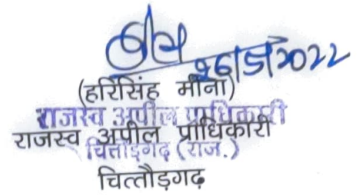 26/5/2022
(हरिसिंह मीना)
राजस्व अपील प्राधिकारी
राजस्व अपील प्राधिकारी
चित्तौड़गढ़ (राज.)
चित्तौड़गढ़